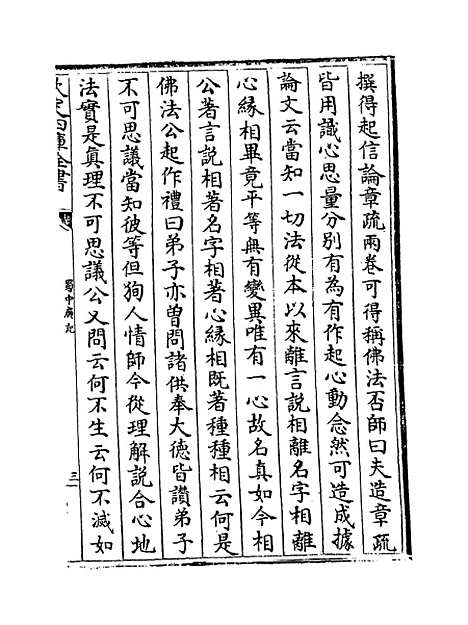 撰得起信論章疏兩卷可得稱佛法否師曰夫造章疏
皆用識心思量分別有為有作起心動念然可造成據
論文云當知一切法從本以來離言説相離名字相離
心縁相畢竟平等無有變異唯有一心故名真如今相
公著言説相著名字相著心縁相既著種種相云何是
佛法公起作禮曰弟子亦曽問諸供奉大德皆讃弟子
不可思議當知彼等但狥人情師今從理解説合心地
法實是真理不可思議公又問云何不生云何不滅如
欽定四庫全書
蜀中廣記
三